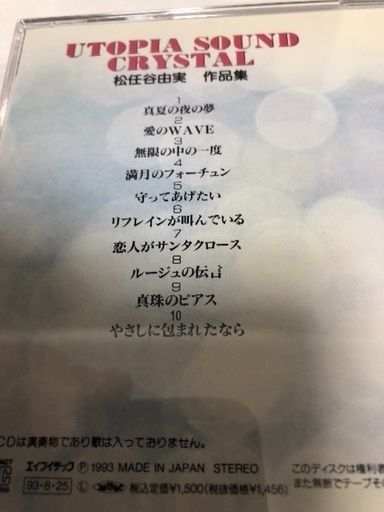 UTOPIA SOUND
CRYSTAL
松任谷由実 作品集
1
真夏の夜の夢
2
愛のWAVE
3
無限の中の一度
4
満月のフォーチュン
5
守ってあげたい
6
リフレインが叫んでいる
7
恋人がサンタクロース
8
ルージュの伝言
9
真珠のピアス
10
やさしに包まれたなら
CDは演奏物であり歌は入っておりません。
エイフイテック Ⓟ 1993 MADE IN JAPAN STEREO
このディスクは権利者
93・8・25 税込定価¥1,500(税抜価格¥1,456)
また無断でテープその